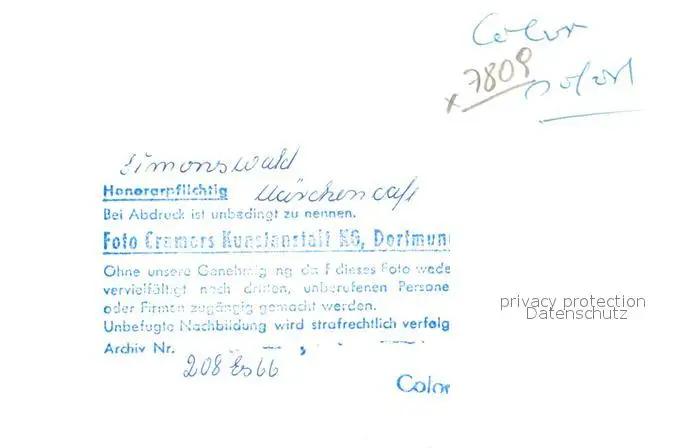 Color
x 7809
sofort
Simonswald
Honorarpflichtig Märchencafe
Bei Abdruck ist unbedingt zu nennen.
Foto Cramers Kunstanstalt KG, Dortmun
Ohne unsere Genehmigung darf dieses Foto wede
vervielfältigt noch dritten, unberufenen Persone
oder Firmen zugängig gemacht werden.
Unbefugte Nachbildung wird strafrechtlich verfolg
Archiv Nr.
208 Es 66
Color
privacy protection
Datenschutz